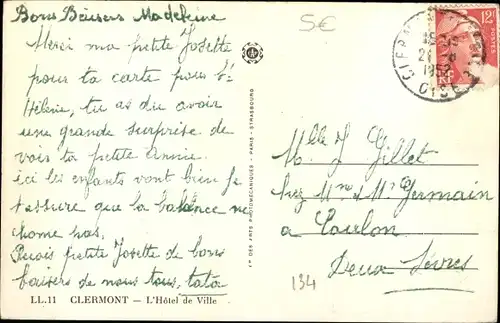 Bons Baisers Madeleine
Merci ma petite Josette
pour ta carte pour Ste
Hélène, tu as du avoir
une grande surprise de
voir ta petite Annie.
ici les enfants vont bien je
t'assure que la balance ne
chome pas.
petite Josette de bons
baisers de nous tous, tata
LL.11 CLERMONT — L'Hôtel de Ville
5€
Mlle J Gillet
chez Mme & Mr Germain
a Coulon
Deux Sèvres
134
PARIS - STRASBOURG
12F
POSTES
RF
1952
OISE